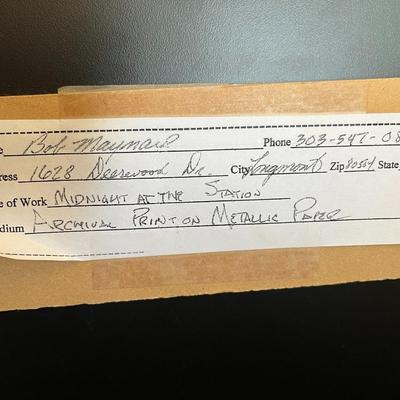 e Bob Maynard Phone 303-547-08
ress 1628 Deerwood Dr. City Longmont Zip 80504 State
e of Work MIDNIGHT AT THE STATION
dium ARCHIVAL PRINT ON METALLIC PAPER